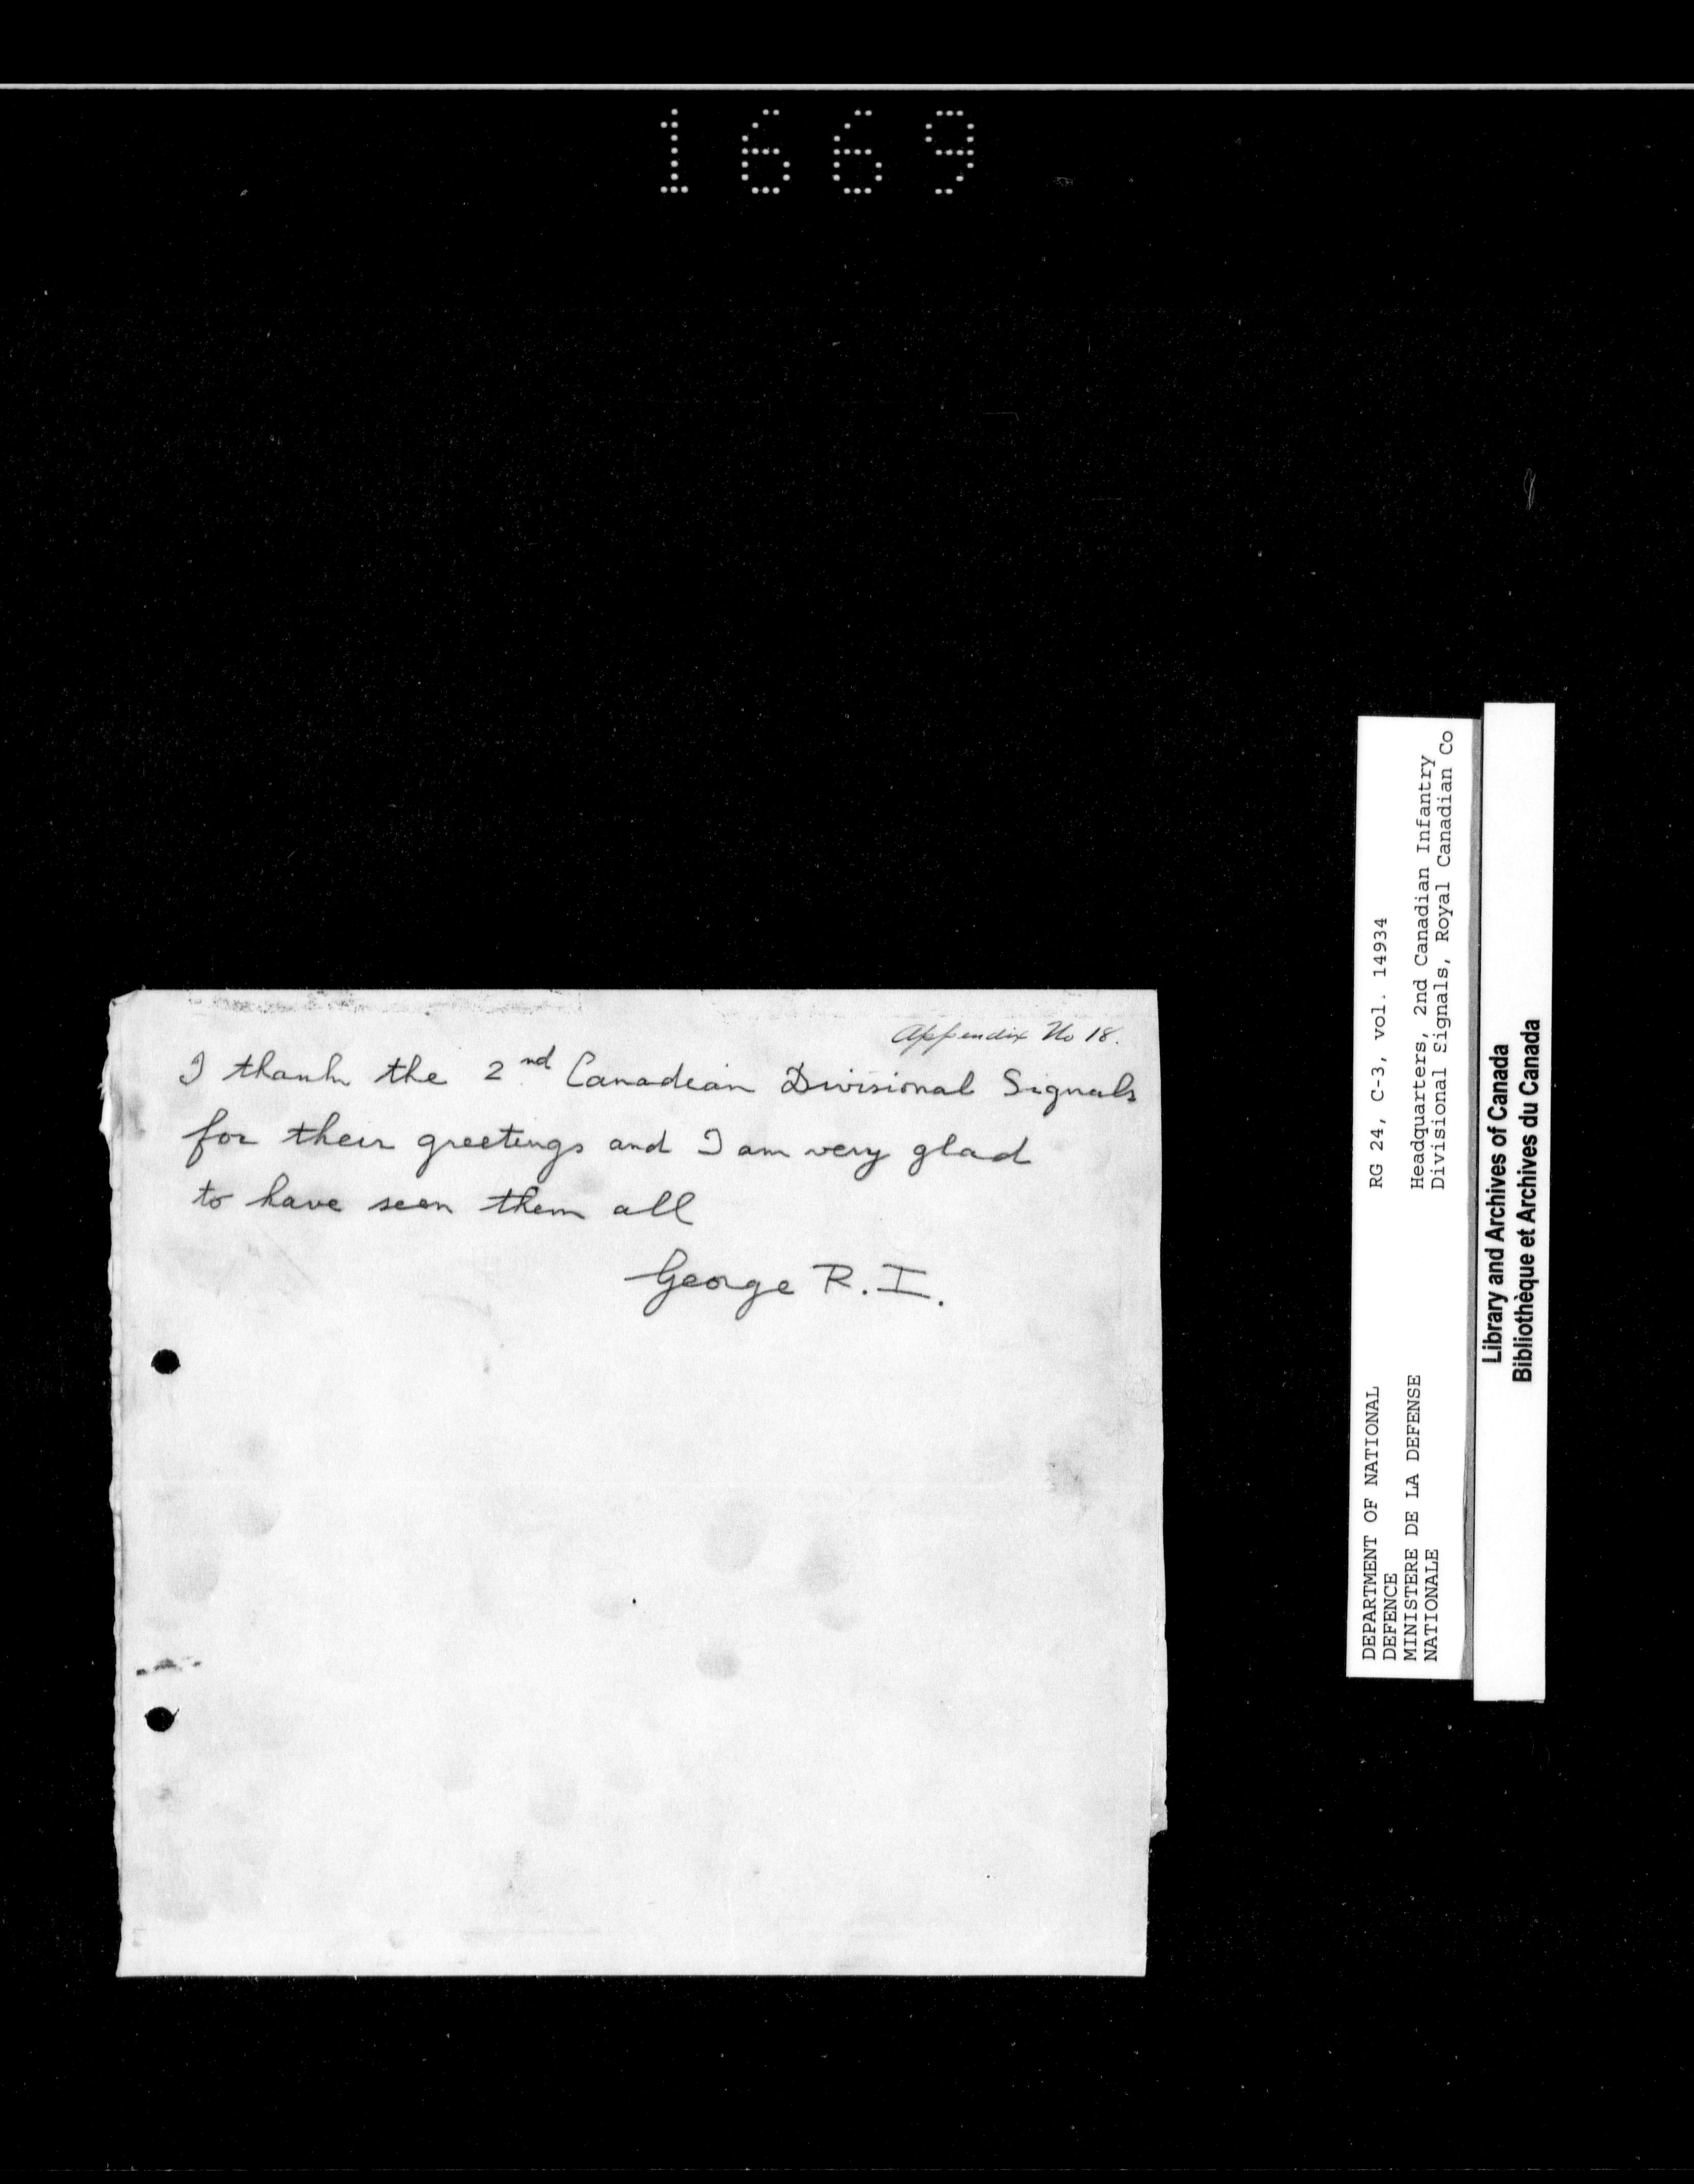 1669
Appendix No 18.
I thank the 2nd Canadian Divisional Signals
for their greetings and I am very glad
to have seen them all
George R.I.
DEPARTMENT OF NATIONAL
DEFENCE
MINISTERE DE LA DEFENSE
NATIONALE
RG 24, C-3, vol. 14934
Headquarters, 2nd Canadian Infantry
Divisional Signals, Royal Canadian Co
Library and Archives of Canada
Bibliothèque et Archives du Canada